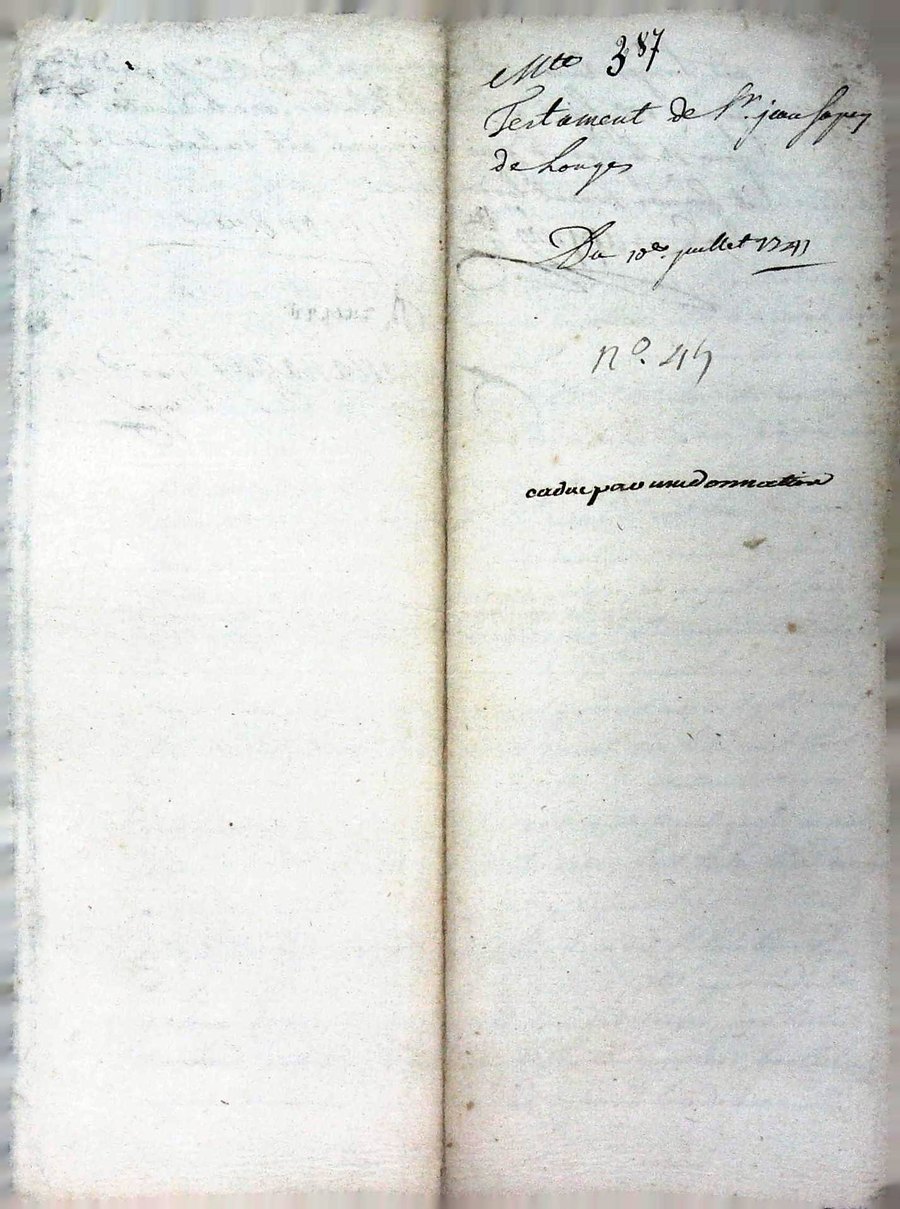 387
Testament de Sr. jean
de Longes
Du 10e. juillet 1741
no. 45
caduc par une donnation